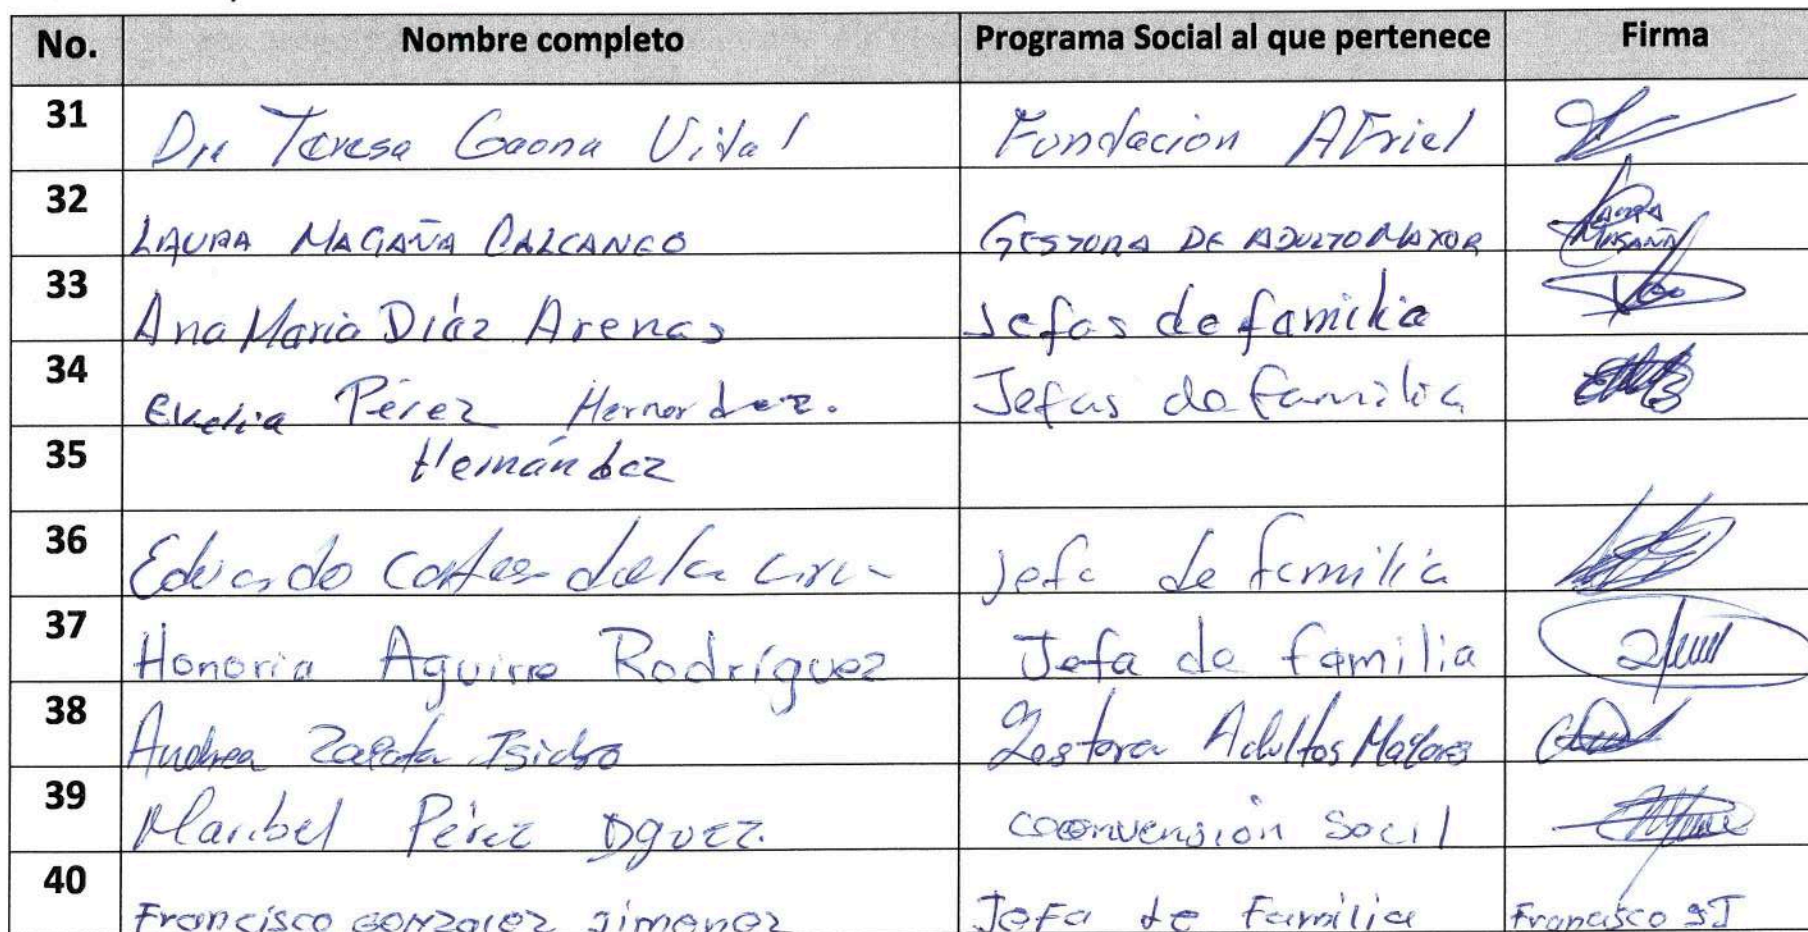 No. Nombre completo Programa Social al que pertenece Firma
31 Teresa Gaona Vital Fundacion Atriel
32 LAURA MAGAÑA CALCANEO GESTORA DE ADULTO MAYOR LAURA MAGAÑA
33 Ana Maria Díaz Arenas Jefas de familia
34 Evelia Pérez Hernandez. Jefas de familia
35 Hernández
36 Eduardo Cortes de la Jefa de familia
37 Honoria Aguirre Rodríguez Jefa de familia
38 Andrea Zapata Isidro Gestora Adultos Mayores
39 Maribel Pérez Dguez. Socil
40 Francisco GONZALEZ Jimenez Jefa de Familia Francisco GJ